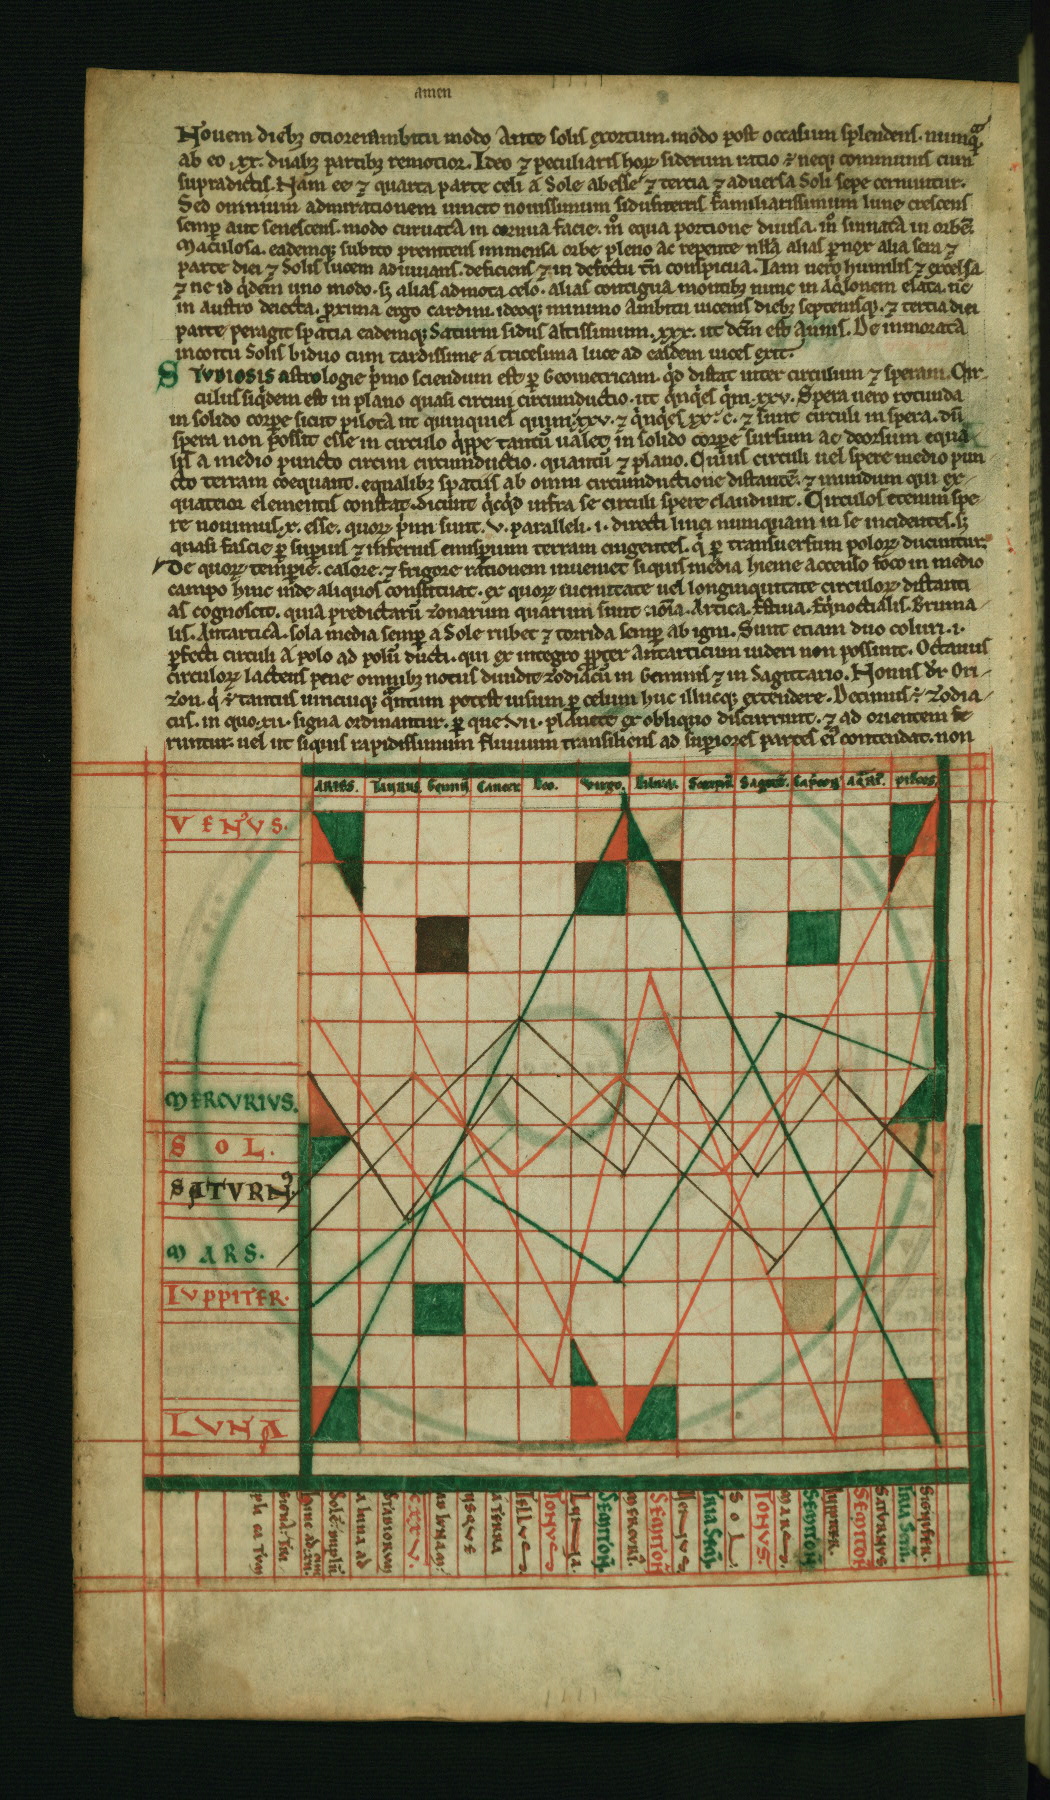 amen
Nouem dieb; otiore ambitu modo Ante solis exortum. modo post occasum splendens. numq̃
ab eo .xx. duab; partib; remotior. Ideo ⁊ peculiaris hoꝝ siderum ratio ẽ neq; communis cum
supradictis. Nam ee ⁊ quarta parte celi a Sole abesse ⁊ tercia ⁊ aduersa Soli sepe cernuntur.
Sed omnium admirationem uincit nouissimum sidus terris familiarissimum lune crescens
semꝑ aut senescens. modo curuata in cornua facie. m̊ equa portione diuisa. m̊ sinuata in orbẽ.
Maculosa. eademq; subito prenitens inmensa orbe pleno ac repente nłła alias ꝑnox alia sera ⁊
parte diei ⁊ Solis lucem adiuuans. deficiens ⁊ in defectu tñ conspicua. Iam uero humilis ⁊ excelsa
⁊ ne id q̇dem uno modo. sꝫ alias admota celo. alias contigua montib; nunc in Aq̇lonem elata. nc̄
in austro deiecta. ꝓxima ergo cardini. ideoq; minimo Ambitu uicenis dieb; septenisq;. ⁊ tercia diei
parte peragit spatia eademq; Saturni sidus Altissimum .xxx. ut dc̃m est Annis. De inmorata
incoitu Solis biduo cum tardissime a tricesima luce ad easdem uices exit.
STVDIOSIS astrologie p̃mo sciendum est ꝑ Geometricam. q̇d distat inter circulum ⁊ speram. Cir-
culus siq̇dem est in plano quasi circini circumductio. ut q̇nq̇es q̇ni .xxv. Spera uero rotunda
in solido corpe sicut pilota ut quinquies quini .xxv. ⁊ q̇nq̇es xx. c. ⁊ sunt circuli in spera. dũ
spera non possit esse in circulo q̇ppe tantũ ualet in solido corpe sursum ac deorsum equa
lis a medio puncto circini circumductio. quantũ ⁊ plano. Cuius circuli uel spere medio pun
cto terram coequant. equalib; spatiis ab omni circumductione distantẽ. ⁊ mundum qui ex
quatuor elementis constat. dicunt q̇cq̇d infra se circuli spere claudunt. Circulos etenim spe-
re nouimus .x. esse. quoꝝ p̃mi sunt .v. paralleli .i. directi linei numquam in se incidentes. sꝫ
quasi fascie ꝑ suꝑius ⁊ inferius emisꝑium terram cingentes. q̇ ꝑ transuersum poloꝝ ducuntur.
De quoꝝ temperie. calore. ⁊ frigore rationem inueniet siquis media hieme accenso foco in medio
campo hinc inde aliquos constituat. ex quoꝝ uicinitate uel longinquitate circuloꝝ distanti
as cognoscit. quia predictarũ zonarum quarum sunt nõia. Artica. Estiua. Eq̇noctialis. Bruma-
lis. Antartica. sola media semꝑ a Sole rubet ⁊ torrida semꝑ ab igni. Sunt etiam duo coluri .i.
ꝑfecti circuli A polo ad polũ ducti. qui ex integro ꝓpter Antarticum uideri non possunt. Octauus
circuloꝝ lacteus pene omnib; notus diuidit zodiacũ in Geminis ⁊ in Sagittario. Nonus dr̃ Ori-
zon. q̇ ẽ tantus unicuiq; q̃ntum potest uisum ꝑ celum huc illucq; extendere. Decimus ẽ zodia-
cus. in quo .xii. signa ordinantur. ꝑ que .vii. planete ex obliquo discurrunt. ⁊ ad orientem fe
runtur. uel ut siquis rapidissimum fluuium transiliens ad suꝑiores partes ei⁹ contendat. non
ARIES. Taurus. Gemini Cancer Leo. Virgo. Libra. Scorpiᵒ. Sagitt. Capcorn Aq̃ri. pisces.
VENVS.
MERCVRIVS.
SOL.
SATVRN⁹.
MARS.
IVPPITER.
LVNA
a luna ad
CXXV.
ad lunam.
vsque
a terra
Tellus
TONVS
Luna.
SEMITOÑ
MERCVRI⁹.
SEMITOÑ
Venus
TRIA SEM̃.
SOL
TONVS.
Mars
SEMITOÑ
IVPITER.
SEMITOÑ
SATVRNVS
TRIA SEM̃.
SIGNIFER.